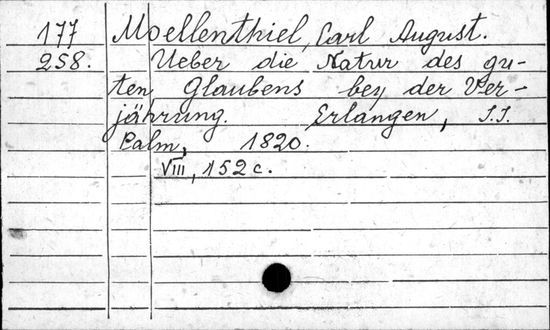 177 Moellenthiel, Carl August.
258. Ueber die Natur des gu-
ten Glaubens bey der Ver-
jährung. Erlangen, J.J.
Palm, 1820.
VIII, 152 c.